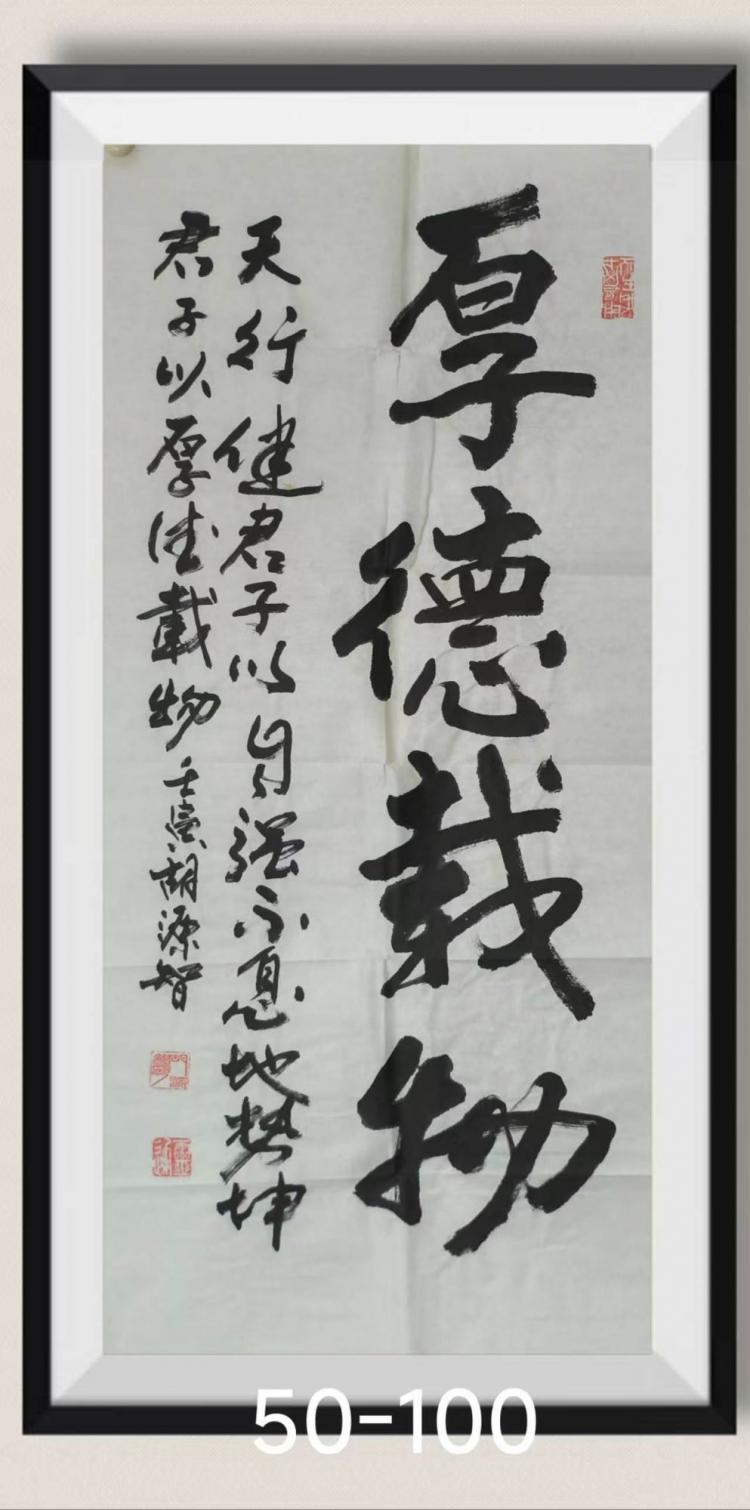 厚德载物
天行健君子以自强不息地势坤
君子以厚德載物壬寅胡源智
50-100